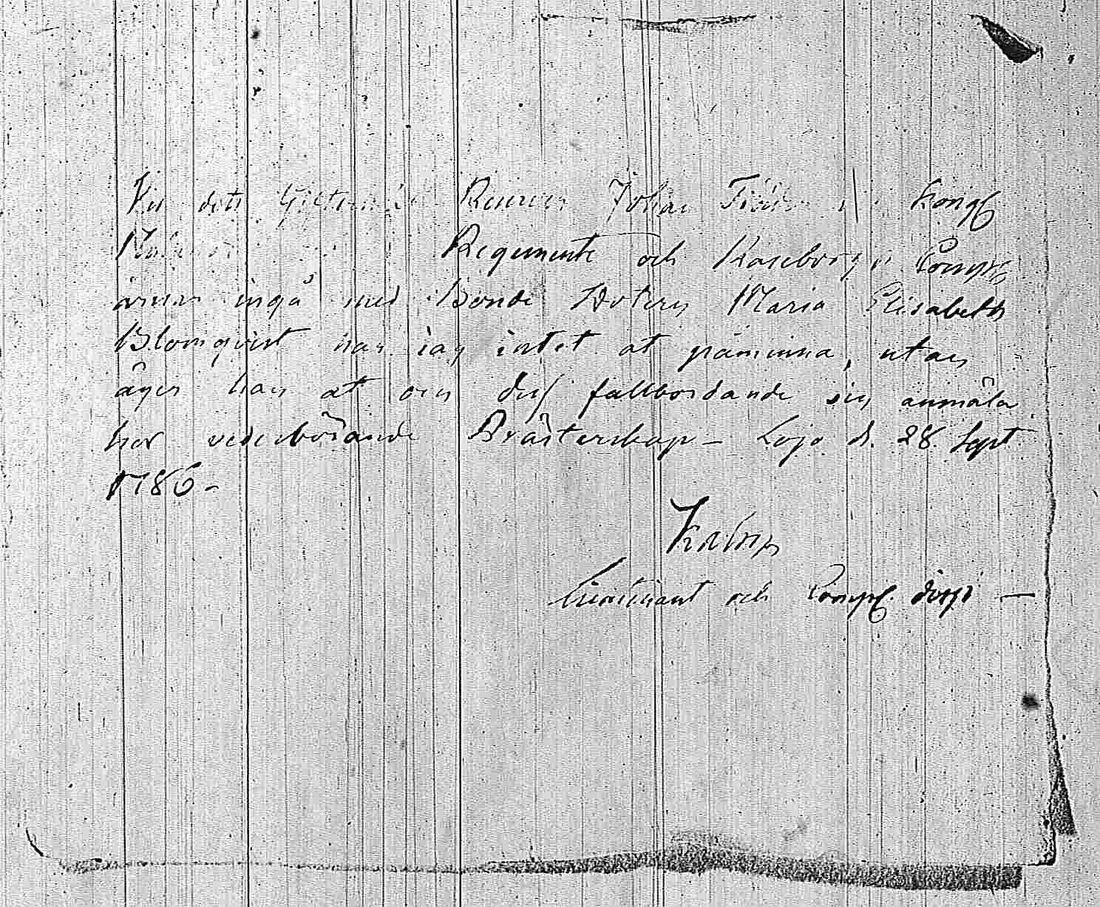 Vid det Giftermål Reserven Johan Kongl
Regemente och Raseborgs Comp
ärnar ingå med Bonde Doteren Maria Elisabeth
Blomqvist har iag intet at påminna, utan
äger han at om des fullbordande sig anmäla
hos vederbörande Prästerskap – Lojo d. 28 Sept
1786 –
Lieutenant och Comp